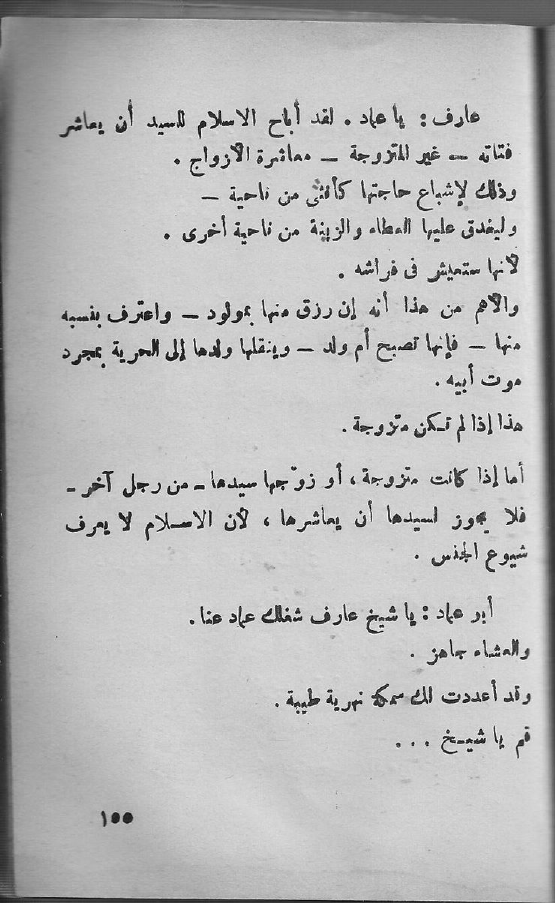 عارف : يا عماد . لقد أباح الاسلام للسيد أن يعاشر
فتاته — غير المتزوجة — معاشرة الأزواج .
وذلك لإشباع حاجتها كأنثى من ناحية —
وليغدق عليها العطاء والزينة من ناحية أخرى .
لأنها ستعيش فى فراشه .
والأهم من هذا أنه إن رزق منها بمولود — واعترف بنسبه
منها — فإنها تصبح أم ولد — وينقلها ولدها إلى الحرية بمجرد
موت أبيه .
هذا إذا لم تكن متزوجة .
أما إذا كانت متزوجة ، أو زوّجها سيدها — من رجل آخر —
فلا يجوز لسيدها أن يعاشرها ، لأن الاسلام لا يعرف
شيوع الجنس .
أبو عماد : يا شيخ عارف شغلك عماد عنا .
والعشاء جاهز .
وقد أعددت لك سمكة نهرية طيبة .
قم يا شيخ . . .
١٥٥